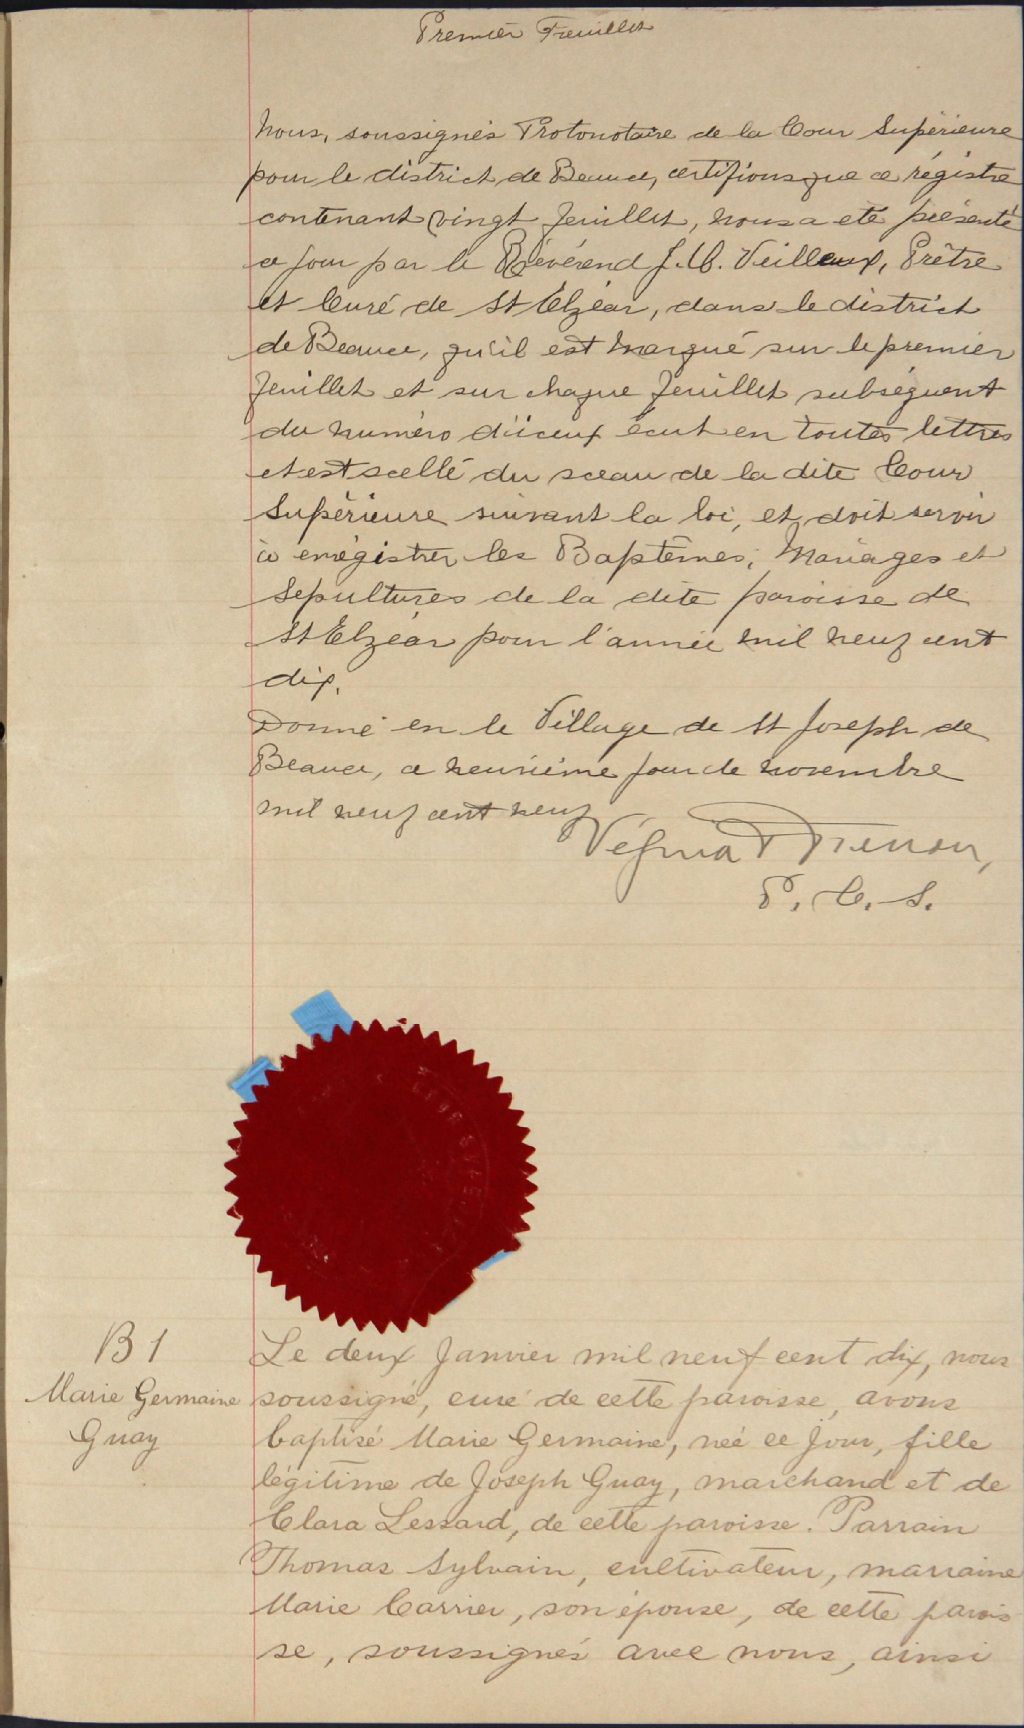 Premier Feuillet
Nous, soussignés Protonotaire de la Cour Supérieure
pour le district de Beauce, certifions que ce régistre
contenant vingt feuillet, nous a été présenté
ce jour par le Révérend J. U. Veilleux, Prêtre
et Curé de St Elzéar, dans le district
de Beauce, qu'il est marqué sur le premier
feuillet et sur chaque feuillet subséquent
du numéro d'iceux écrit en toutes lettres
et est scellé du sceau de la dite Cour
Supérieure suivant la loi, et doit servir
à enrégistrer les Baptêmes, Mariages et
Sépultures de la dite paroisse de
St Elzéar pour l'année mil neuf cent
dix.
Donné en le Village de St Joseph de
Beauce, ce neuvième jour de novembre
mil neuf cent neuf
Vézina
P. C. S.
B 1
Marie Germaine
Guay
Le deux Janvier mil neuf cent dix, nous
soussigné, curé de cette paroisse, avons
baptisé Marie Germaine, née ce jour, fille
légitime de Joseph Guay, marchand et de
Clara Lessard, de cette paroisse. Parrain
Thomas Sylvain, cultivateur, marraine
Marie Carrier, son épouse, de cette parois
se, soussignés avec nous, ainsi